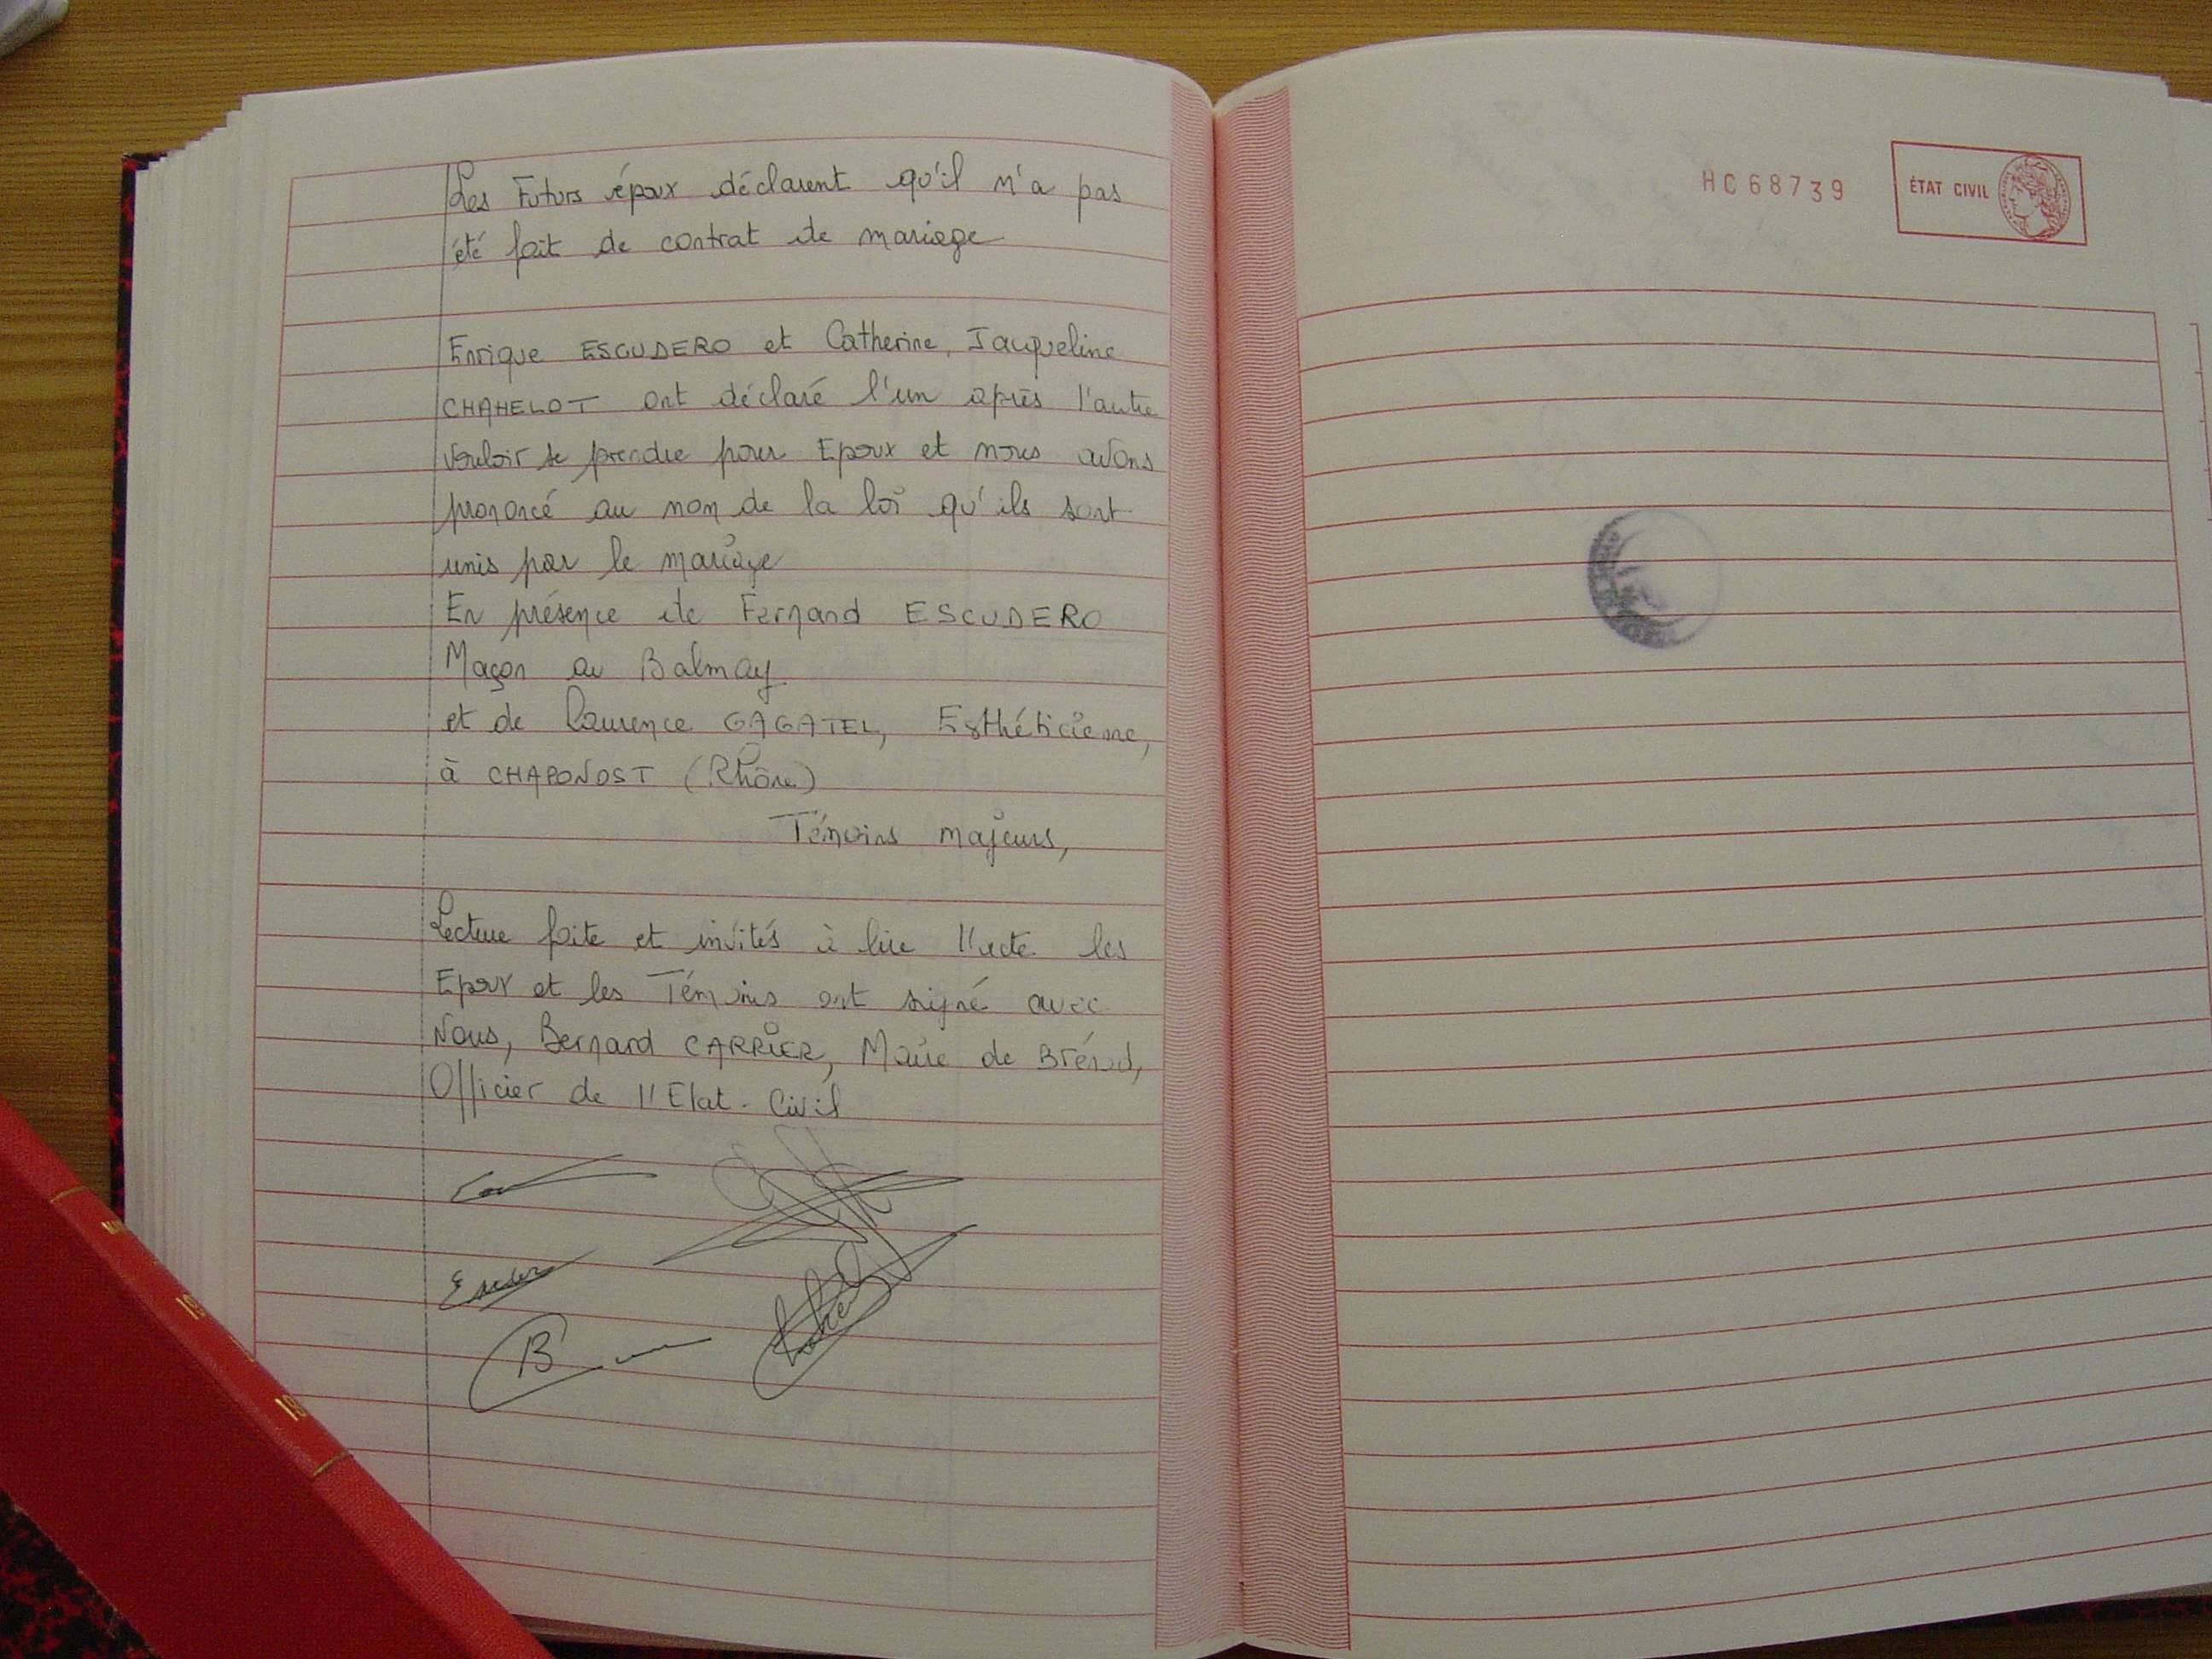 Les Futurs époux déclarent qu'il n'a pas
été fait de contrat de mariage
Enrique ESCUDERO et Catherine, Jacqueline
CHAMELOT ont déclaré l'un après l'autre
vouloir se prendre pour Epoux et nous avons
prononcé au nom de la loi qu'ils sont
unis par le mariage
En présence de Fernand ESCUDERO
Maçon au Balmay
et de Laurence GAGATEL, Esthéticienne,
à CHAPONOST (Rhône)
Témoins majeurs,
Lecture faite et invités à lire l'acte les
Epoux et les Témoins ont signé avec
Nous, Bernard CARRIER, Maire de Brénod,
Officier de l'Etat-Civil
HC68739
ÉTAT CIVIL